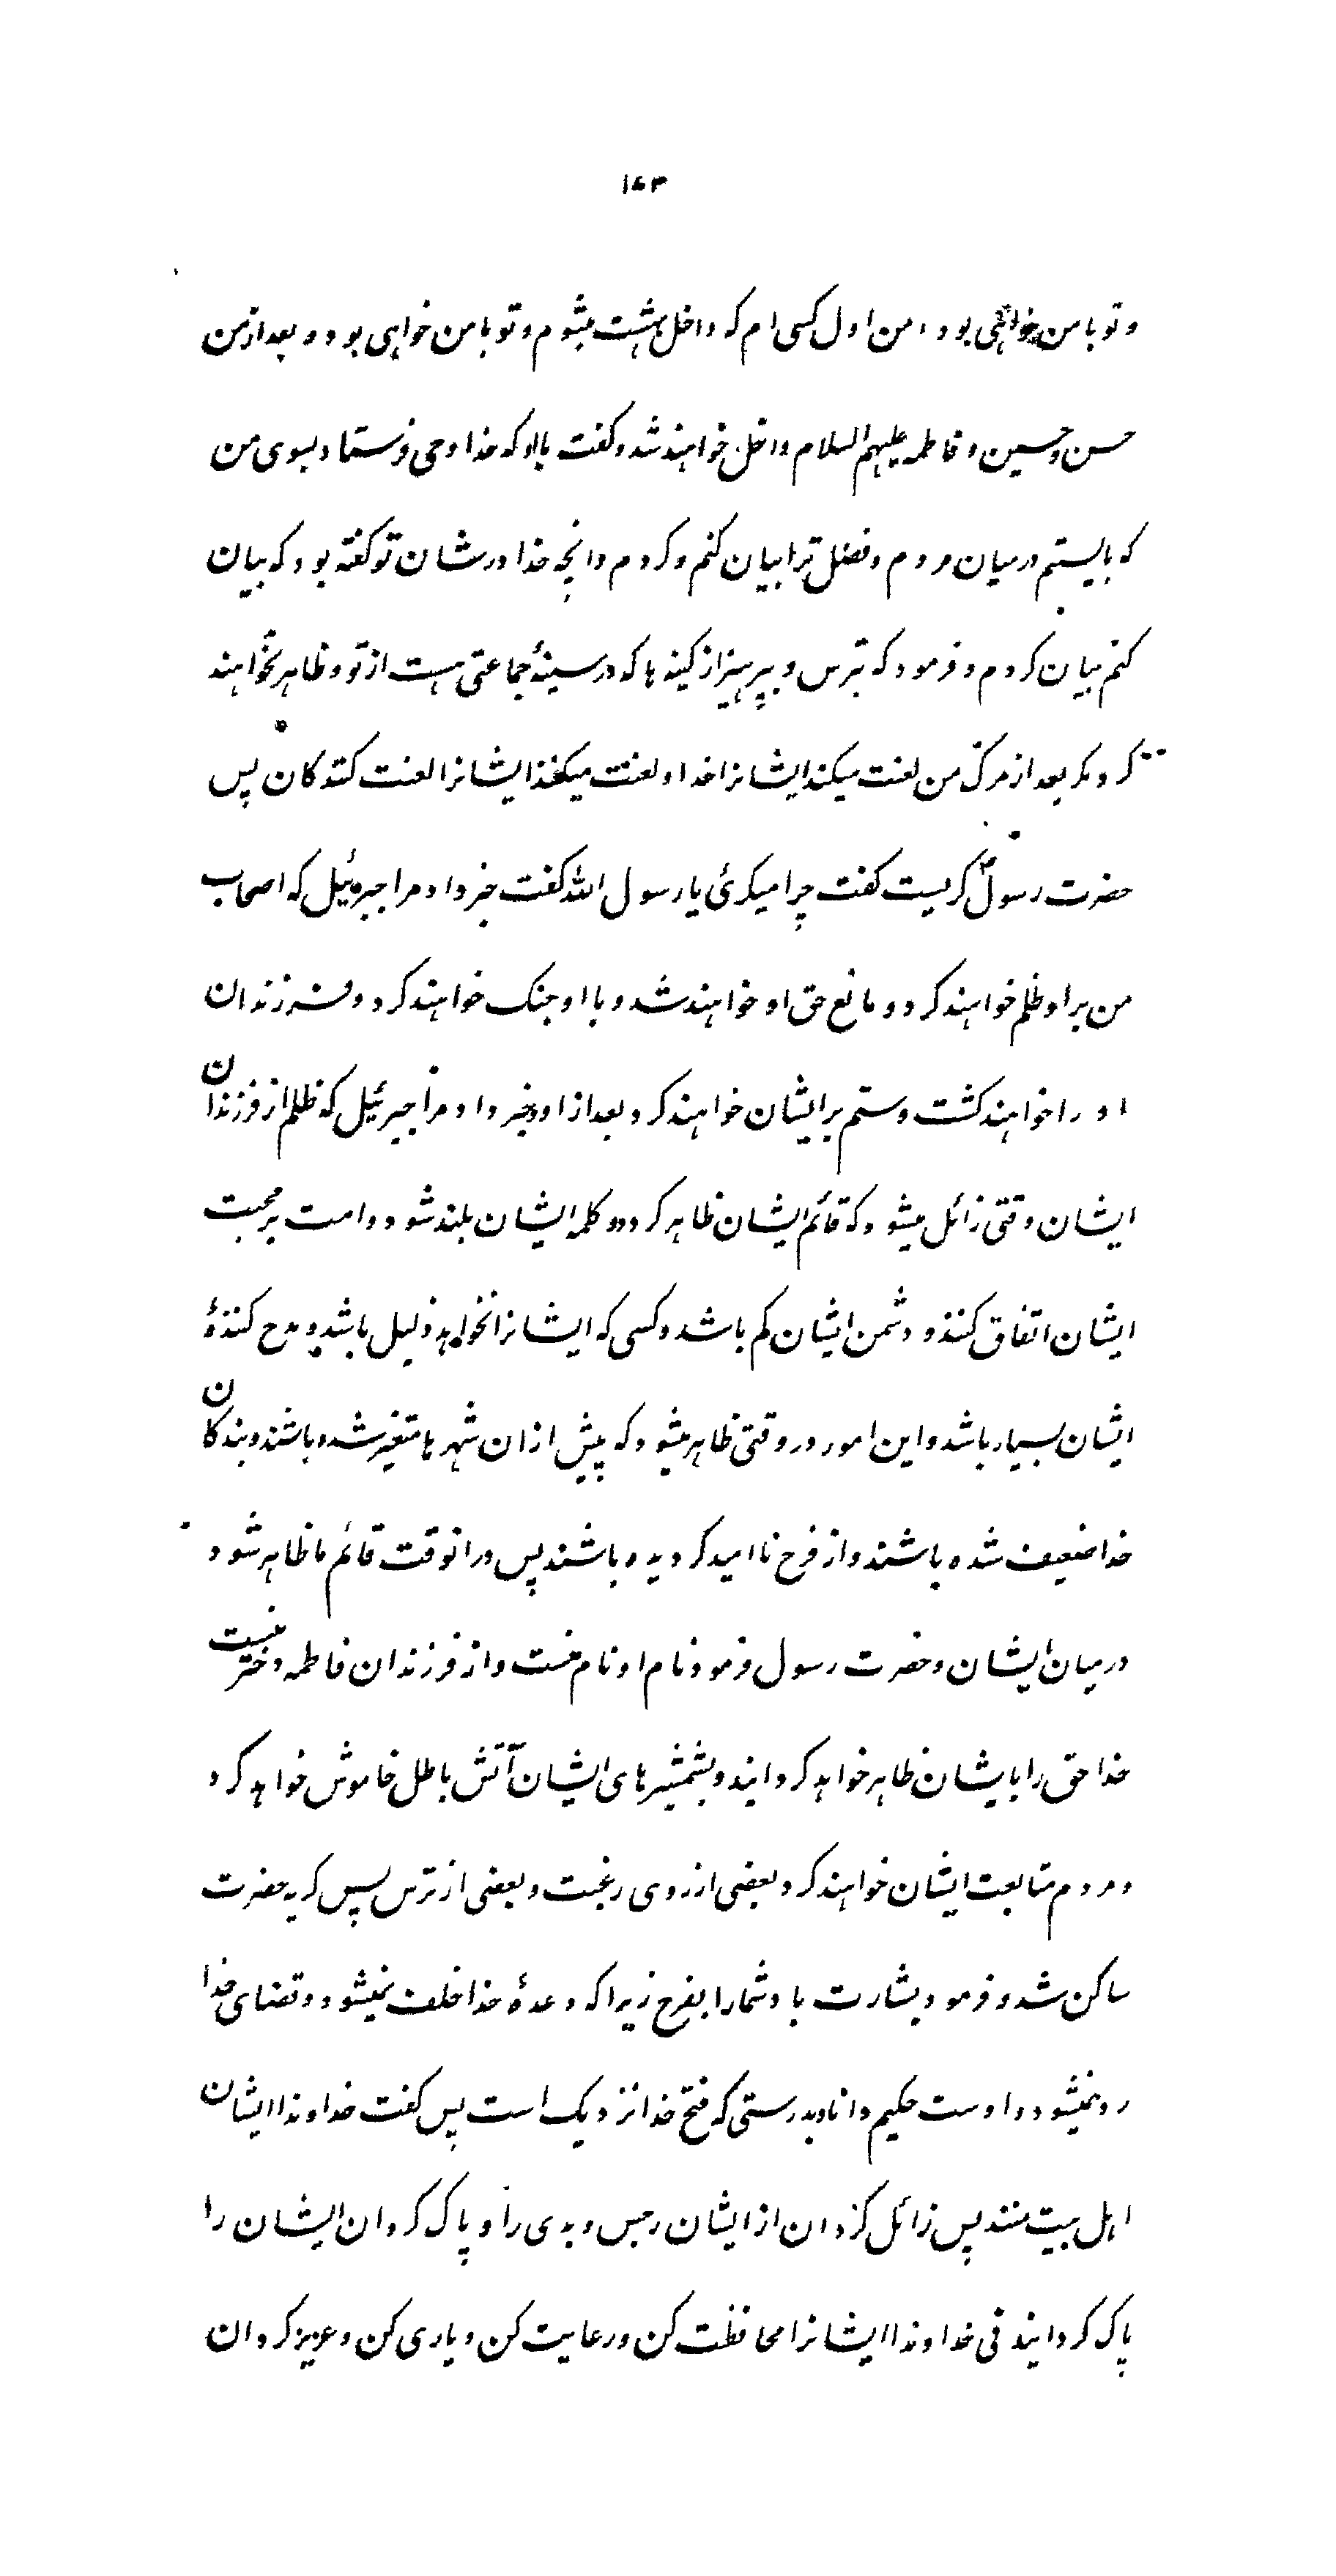 ۱۴۳
و تو با من خواهی بود و من اول کسی ام که داخل بهشت میشوم و تو با من خواهی بود و بعد از من
حسن و حسین و فاطمه علیهم السلام داخل خواهند شد و کفت با او که خدا وحی فرستاد بسوی من
که بایستم در میان مردم و فضل ترا بیان کنم و کردم و انچه خدا در شان تو کفته بود که بیان
کنم بیان کردم و فرمود که بترس و بپرهیز از کینه ها که در سینۀ جماعتی هست از تو و ظاهر نخواهند
کرد مکر بعد از مرک من لعنت میکند ایشانرا خدا و لعنت میکنند ایشانرا لعنت کنندکان پس
حضرت رسول کریست کفت چرا میکرئی یا رسول الله کفت خبر داد مرا جبرئیل که اصحاب
من بر او ظلم خواهند کرد و مانع حق او خواهند شد و با او جنک خواهند کرد و فرزندان
او را خواهند کشت و ستم بر ایشان خواهند کرد بعد از او و خبر داد مرا جبرئیل که ظلم از فرزندان
ایشان وقتی زائل میشود که قائم ایشان ظاهر کردد و کلمه ایشان بلند شود و امت بر محبت
ایشان اتفاق کنند و دشمن ایشان کم باشد و کسی که ایشانرا نخواهد ذلیل باشد و مدح کنندۀ
ایشان بسیار باشد و این امور در وقتی ظاهر میشود که پیش از ان شهرها متغیر شده باشند و بندکان
خدا ضعیف شده باشند و از فرح ناامید کردیده باشند پس در انوقت قائم ما ظاهر شود
در میان ایشان و حضرت رسول فرمود نام او نام منست و از فرزندان فاطمه دختر منست
خدا حق را بایشان ظاهر خواهد کردانید و بشمشیرهای ایشان آتش باطل خاموش خواهد کرد
و مردم متابعت ایشان خواهند کرد بعضی از روی رغبت و بعضی از ترس پس کریه حضرت
ساکن شد و فرمود بشارت باد شما را بفرح زیرا که وعدۀ خدا خلف نمیشود و قضای خدا
رد نمیشود و اوست حکیم و دانا و بدرستی که فتح خدا نزدیک است پس کفت خداوندا ایشان
اهل بیت منند پس زائل کردان از ایشان رجس و بدی را و پاک کردان ایشان را
پاک کردانیدنی خداوندا ایشانرا محافظت کن و رعایت کن و یاری کن و عزیز کردان